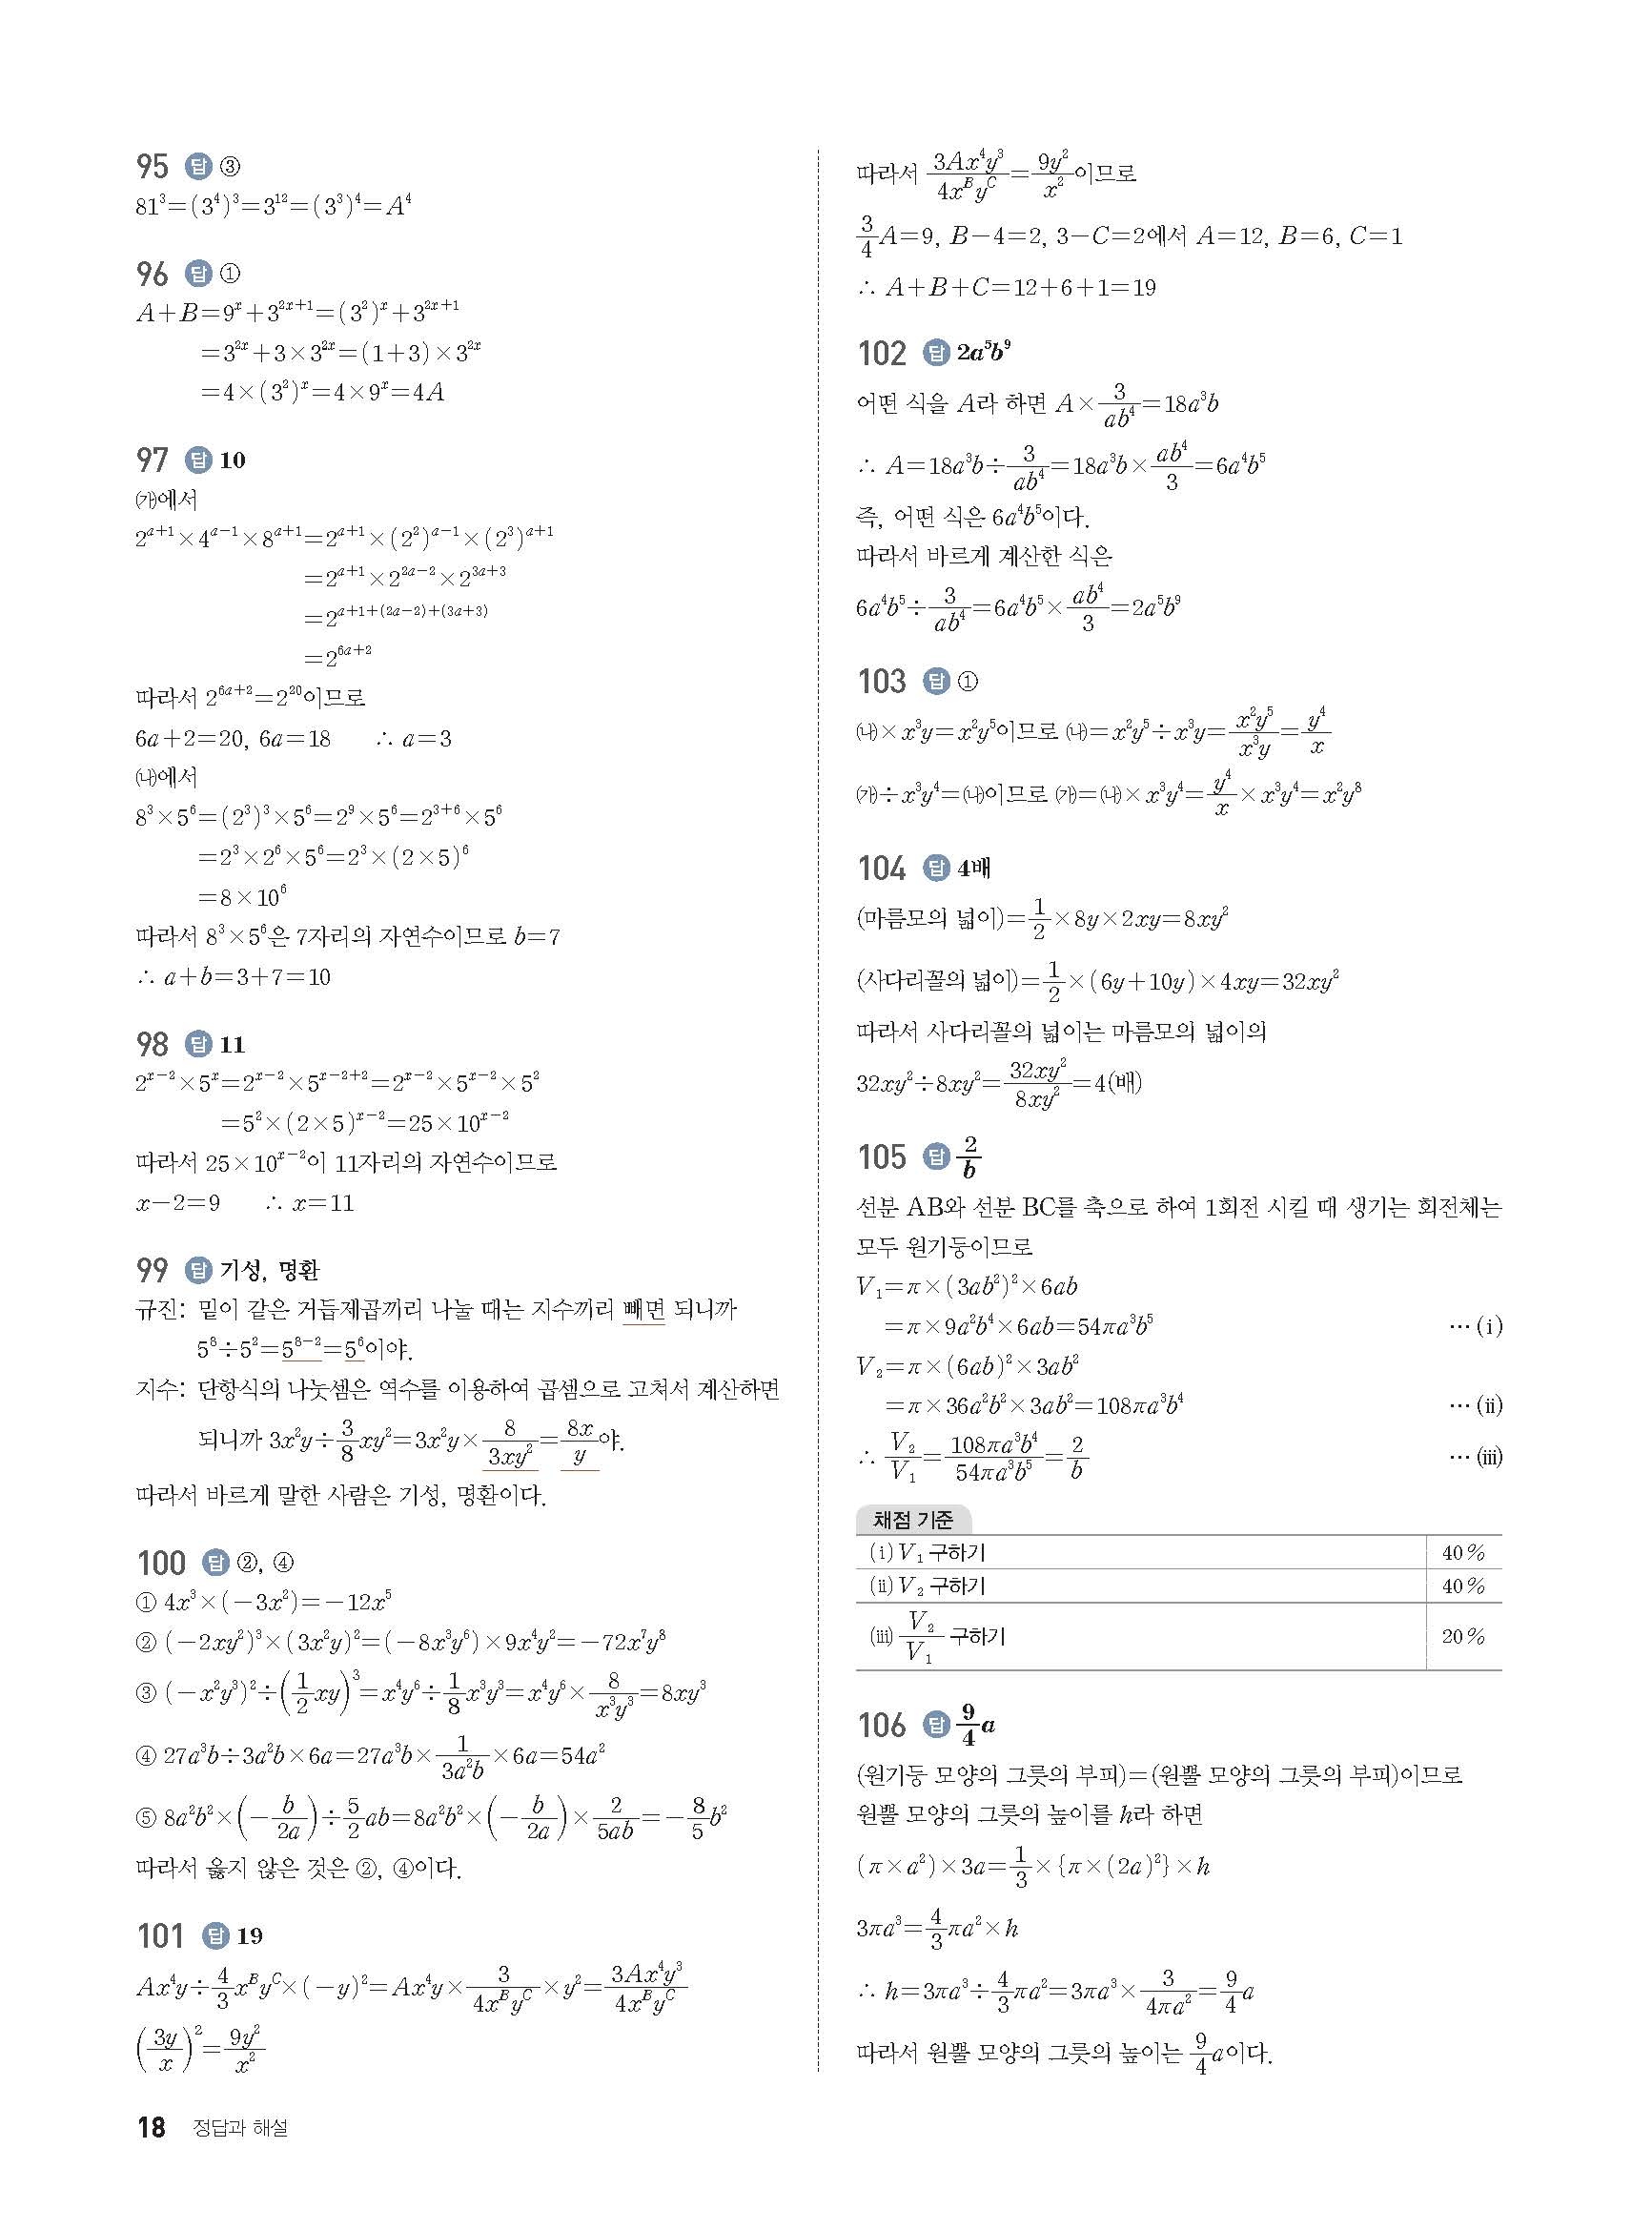 95 답 ③
81³=(3⁴)³=3¹²=(3³)⁴=A⁴
96 답 ①
A+B=9ˣ+3²ˣ⁺¹=(3²)ˣ+3²ˣ⁺¹
=3²ˣ+3×3²ˣ=(1+3)×3²ˣ
=4×(3²)ˣ=4×9ˣ=4A
97 답 10
㈎에서
2ᵃ⁺¹×4ᵃ⁻¹×8ᵃ⁺¹=2ᵃ⁺¹×(2²)ᵃ⁻¹×(2³)ᵃ⁺¹
=2ᵃ⁺¹×2²ᵃ⁻²×2³ᵃ⁺³
=2ᵃ⁺¹⁺⁽²ᵃ⁻²⁾⁺⁽³ᵃ⁺³⁾
=2⁶ᵃ⁺²
따라서 2⁶ᵃ⁺²=2²⁰이므로
6a+2=20, 6a=18 ∴ a=3
㈏에서
8³×5⁶=(2³)³×5⁶=2⁹×5⁶=2³⁺⁶×5⁶
=2³×2⁶×5⁶=2³×(2×5)⁶
=8×10⁶
따라서 8³×5⁶은 7자리의 자연수이므로 b=7
∴ a+b=3+7=10
98 답 11
2ˣ⁻²×5ˣ=2ˣ⁻²×5ˣ⁻²⁺²=2ˣ⁻²×5ˣ⁻²×5²
=5²×(2×5)ˣ⁻²=25×10ˣ⁻²
따라서 25×10ˣ⁻²이 11자리의 자연수이므로
x-2=9 ∴ x=11
99 답 기성, 명환
규진: 밑이 같은 거듭제곱끼리 나눌 때는 지수끼리 빼면 되니까
5⁸÷5²=5⁸⁻²=5⁶이야.
지수: 단항식의 나눗셈은 역수를 이용하여 곱셈으로 고쳐서 계산하면
되니까 3x²y÷3/8xy²=3x²y×8/3xy²=8x/y야.
따라서 바르게 말한 사람은 기성, 명환이다.
100 답 ②, ④
① 4x³×(-3x²)=-12x⁵
② (-2xy²)³×(3x²y)²=(-8x³y⁶)×9x⁴y²=-72x⁷y⁸
③ (-x²y³)²÷(1/2xy)³=x⁴y⁶÷1/8x³y³=x⁴y⁶×8/x³y³=8xy³
④ 27a³b÷3a²b×6a=27a³b×1/3a²b×6a=54a²
⑤ 8a²b²×(-b/2a)÷5/2ab=8a²b²×(-b/2a)×2/5ab=-8/5b²
따라서 옳지 않은 것은 ②, ④이다.
101 답 19
Ax⁴y÷4/3x^By^C×(-y)²=Ax⁴y×3/4x^By^C×y²=3Ax⁴y³/4x^By^C
(3y/x)²=9y²/x²
따라서 3Ax⁴y³/4x^By^C=9y²/x²이므로
3/4A=9, B-4=2, 3-C=2에서 A=12, B=6, C=1
∴ A+B+C=12+6+1=19
102 답 2a⁵b⁹
어떤 식을 A라 하면 A×3/ab⁴=18a³b
∴ A=18a³b÷3/ab⁴=18a³b×ab⁴/3=6a⁴b⁵
즉, 어떤 식은 6a⁴b⁵이다.
따라서 바르게 계산한 식은
6a⁴b⁵÷3/ab⁴=6a⁴b⁵×ab⁴/3=2a⁵b⁹
103 답 ①
㈏×x³y=x²y⁵이므로 ㈏=x²y⁵÷x³y=x²y⁵/x³y=y⁴/x
㈎÷x³y⁴=㈏이므로 ㈎=㈏×x³y⁴=y⁴/x×x³y⁴=x²y⁸
104 답 4배
(마름모의 넓이)=1/2×8y×2xy=8xy²
(사다리꼴의 넓이)=1/2×(6y+10y)×4xy=32xy²
따라서 사다리꼴의 넓이는 마름모의 넓이의
32xy²÷8xy²=32xy²/8xy²=4(배)
105 답 2/b
선분 AB와 선분 BC를 축으로 하여 1회전 시킬 때 생기는 회전체는
모두 원기둥이므로
V₁=π×(3ab²)²×6ab
=π×9a²b⁴×6ab=54πa³b⁵ … (ⅰ)
V₂=π×(6ab)²×3ab²
=π×36a²b²×3ab²=108πa³b⁴ … (ⅱ)
∴ V₂/V₁=108πa³b⁴/54πa³b⁵=2/b … (ⅲ)
채점 기준
(ⅰ) V₁ 구하기 40%
(ⅱ) V₂ 구하기 40%
(ⅲ) V₂/V₁ 구하기 20%
106 답 9/4a
(원기둥 모양의 그릇의 부피)=(원뿔 모양의 그릇의 부피)이므로
원뿔 모양의 그릇의 높이를 h라 하면
(π×a²)×3a=1/3×{π×(2a)²}×h
3πa³=4/3πa²×h
∴ h=3πa³÷4/3πa²=3πa³×3/4πa²=9/4a
따라서 원뿔 모양의 그릇의 높이는 9/4a이다.
18 정답과 해설